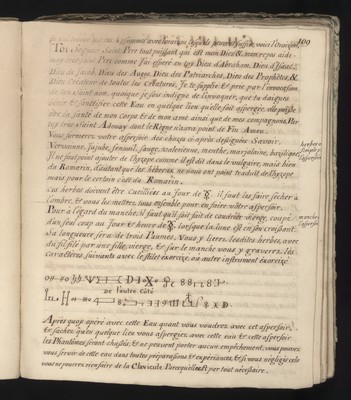 109
Toi Seigneur Saint Pere tout puissant qui est mon Dieu &
Pere comme j'ai esperé en toy Dieu d'Abraham, Dieu d'Isaac,
Dieu de Jacob, Dieu des Anges, Dieu des Patriarches, Dieu des Prophètes, &
Dieu Créateur de toutes les Creatures, Je te supplie & prie, par l'invocation
de ton Saint nom, quoique je sois indigne de l'invoquer, que tu daignes
benir & Santifier cette Eau en quelque lieu qu'elle soit aspergée, elle puisse
être la santé de mon corps & de mon ame ainsi que de mes compagnons, Par
toy tres saint Adonay dont le Règne n'aura point de Fin Amen.
Vous formerez votre aspersoir des choses ci-après designées Savoir,
Vervenne, fenouil, sauge, valerienne, menthe, marjolaine, basilique
Il ne faut point ajouter de l'hysope comme il est dit dans le vulgaire, mais bien
du Romarin, d'autant que les hébreux ne nous ont point traduit de l'hysope
mais pour le certain c'est du Romarin.
Ces herbes doivent être Cueillies au Jour de il faut les faire sécher à
l'ombre, & vous les mettrez tous ensemble pour en faire votre aspersoir.
Pour à l'égard du manche, il faut qu'il soit fait de coudrier vierge, coupé
d'un seul coup au Jour & heure de lorsque la lune est en son croissant.
Sa longueur sera de trois Paumes. Vous y lierez lesdites herbes, avec
du fil filé par une fille vierge, & sur le manche vous y graverez les
caractères suivants avec le stilet exorcizé où autre instrument exorcizé
De l'autre Côté
Après quoy aperé avec cette Eau quant vous voudrez avec cet aspersoir,
& sachez qu'en quelque lieu vous aspergiez avec cette eau & cette aspersoir
les Phantômes seront chassés, & ne peuvent porter aucun empêchement, vous pouvez
vous servir de cette eau dans toutes préparations & expériences, & si vous négligé cela
vous ne pourrez rien faire de la Clavicule, Parcequ'elle est par tout nécessaire.